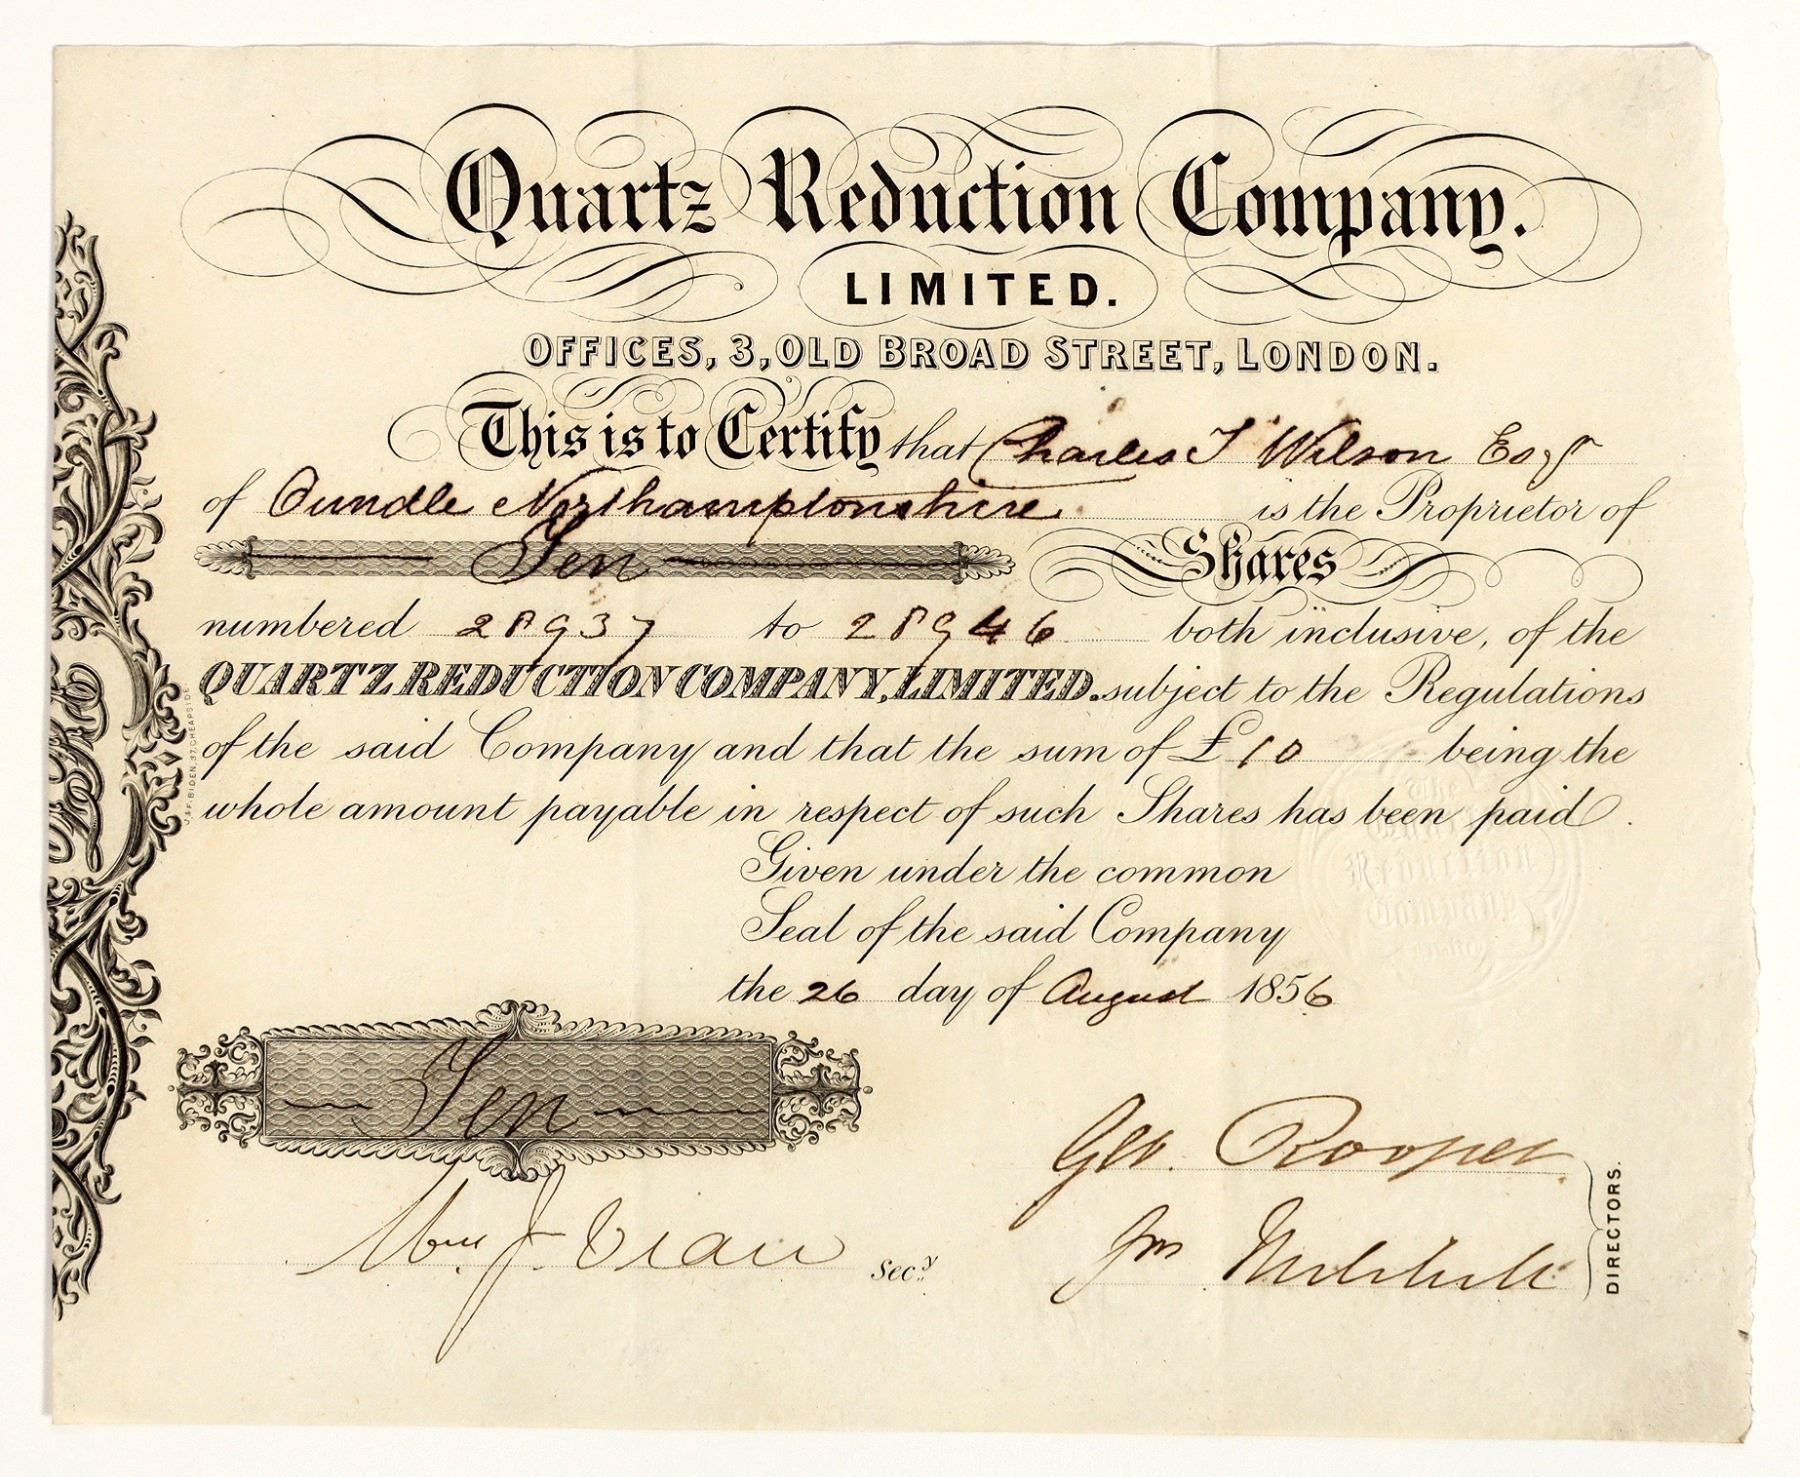 Quartz Reduction Company.
LIMITED.
OFFICES, 3, OLD BROAD STREET, LONDON.
This is to Certify that Charles T Wilson Esqr
of Oundle Northamptonshire is the Proprietor of
Ten Shares
numbered 28937 to 28946 both inclusive, of the
QUARTZ REDUCTION COMPANY, LIMITED. subject to the Regulations
of the said Company and that the sum of £10 being the
whole amount payable in respect of such Shares has been paid.
Given under the common
Seal of the said Company
the 26 day of August 1856
Ten
Geo. Rooper
Wm. J. Vian Secy.
Jno Mitchell
DIRECTORS.
J. & F. BIDEN, 37, CHEAPSIDE
The
Quartz
Reduction
Company